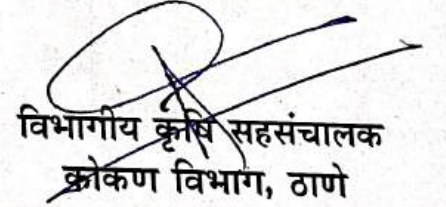 विभागीय कृषि सहसंचालक
कोकण विभाग, ठाणे